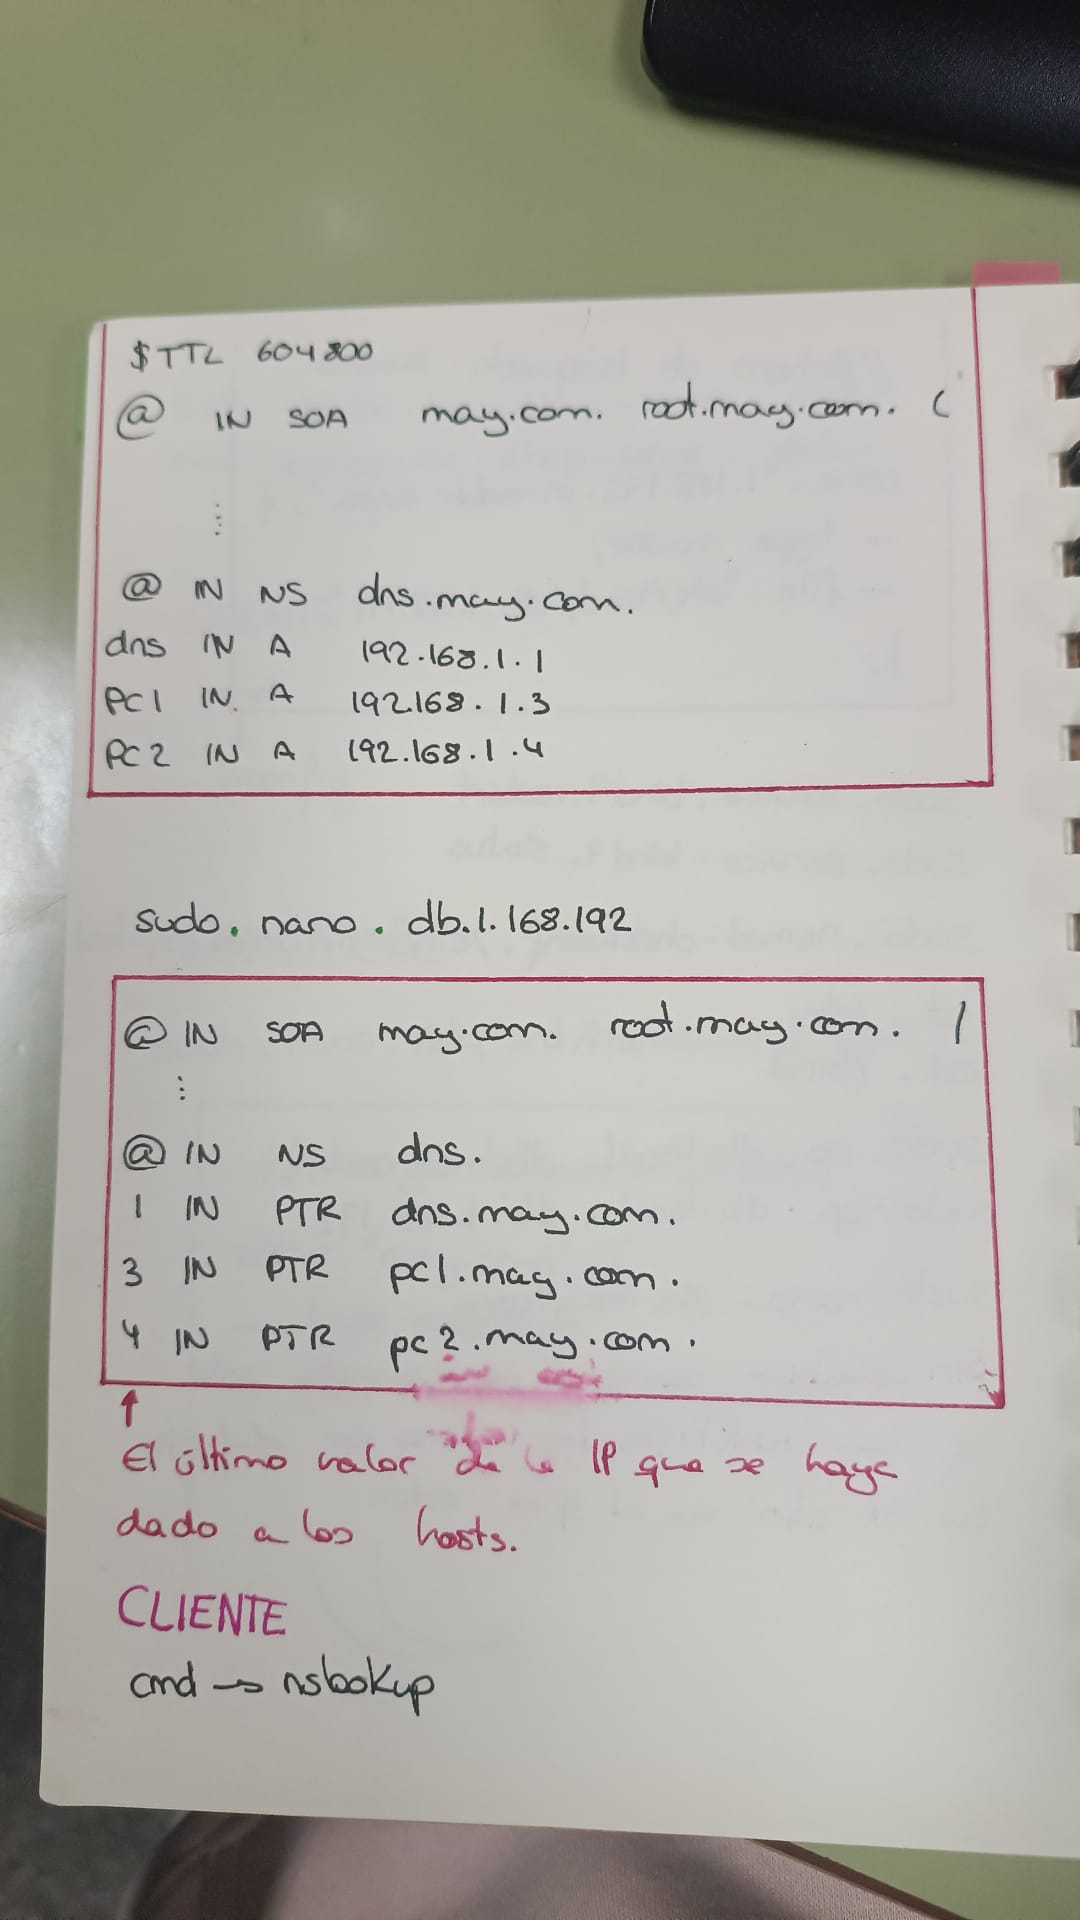 $TTL 604800
@ IN SOA may.com. root.may.com. (
...
@ IN NS dns.may.com.
dns IN A 192.168.1.1
PC1 IN. A 192168.1.3
PC2 IN A 192.168.1.4
sudo. nano. db.1.168.192
@ IN SOA may.com. root.may.com. (
...
@ IN NS dns.
1 IN PTR dns.may.com.
3 IN PTR pc1.may.com.
4 IN PTR pc2.may.com.
↑
El último valor de la IP que se haya
dado a los hosts.
CLIENTE
cmd → nslookup